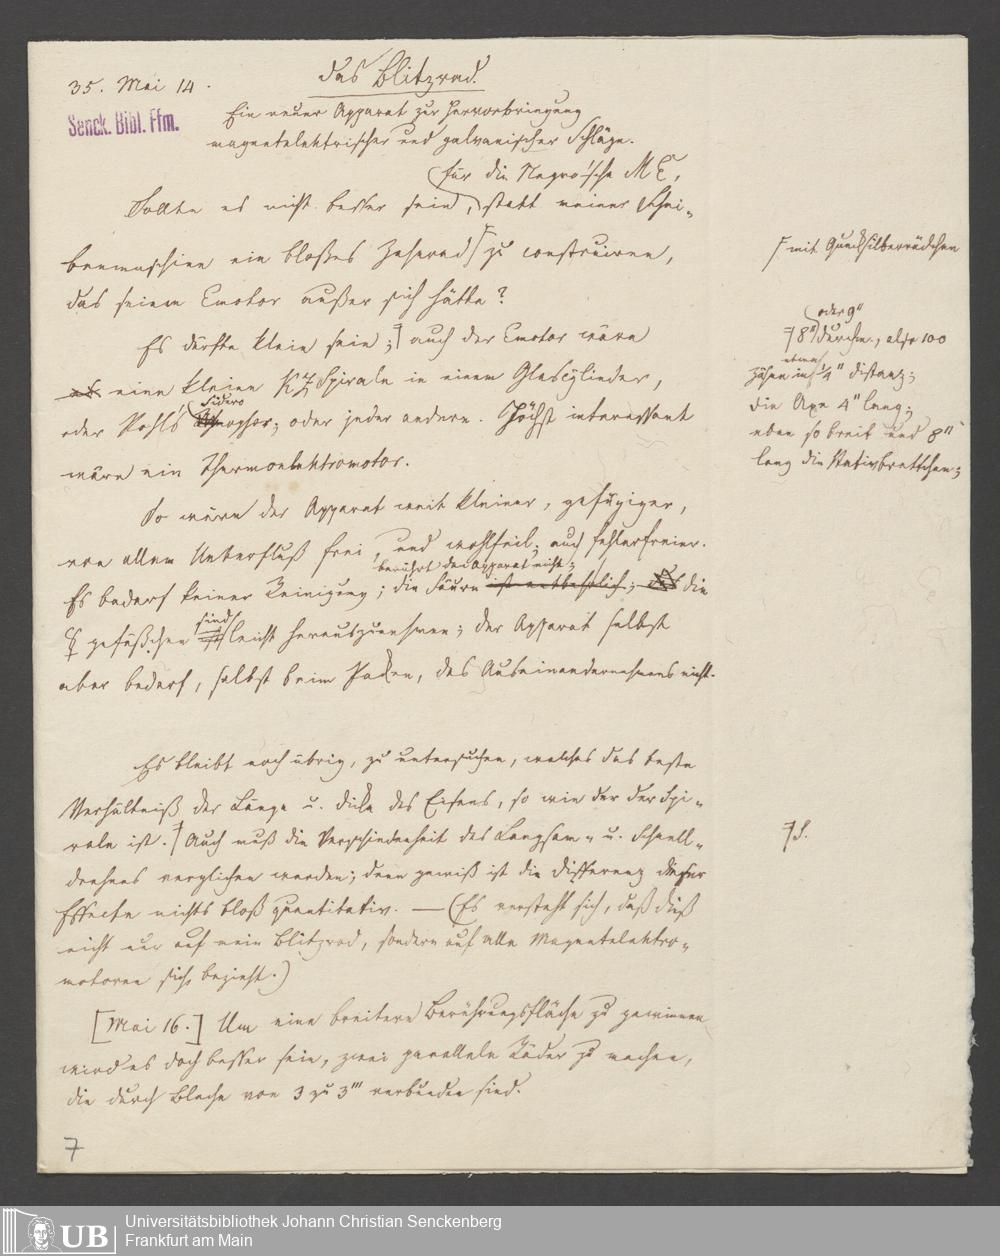 35. Mai 14.
das Blitzrad.
Senck. Bibl. Ffm.
Ein neuer Apparat zur Hervorbringung
magnetelektrischer und galvanischer Schläge.
für die Negro'sche ME,
Sollte es nicht besser sein, statt meiner Schei-
benmaschine ein bloßes Zahnrad zu construiren,
mit Quecksilbernäpfchen
das seinen Emotor außer sich hätte?
oder 9"
Es dürfte klein sein; auch der Emotor wäre
8" Durchm., also 100
etwa
es eine kleine KZ Spirale in einem Glascylinder,
Zähne in 1/4" Distanz;
Sidero
oder Pohl's phor; oder jeder andere. Höchst interessant
die Axe 4" lang;
eben so breit und 8"
wäre ein Thermoelektromotor.
lang die Stativbrettchen;
So wäre der Apparat weit kleiner, gefügiger,
von allem Ueberfluß frei, und wohlfeil; auch fehlerfreier.
berührt den Apparat nicht;
Es bedarf keiner Reinigung; die Säure ist entbehrlich; die
sind
☿ gefäßchen leicht herauszunehmen; der Apparat selbst
aber bedarf, selbst beim Packen, des Auseinandernehmens nicht.
Es bleibt noch übrig, zu untersuchen, welches das beste
Verhältniß der Länge u. Dicke des Eisens, so wie der der Spi-
rale ist. Auch muß die Verschiedenheit des Langsam- u. Schnell-
S.
drehens verglichen werden; denn gewiß ist die Differenz dieser
Effecte nichts bloß quantitativ. — (Es versteht sich, daß dieß
nicht nur auf mein Blitzrad, sondern auf alle Magnetelektro-
motoren sich bezieht.)
[Mai 16.] Um eine breitere Berührungsfläche zu gewinnen
wird es doch besser sein, zwei parallele Räder zu machen,
die durch Bleche von 3 zu 3''' verbunden sind.
7
UB
Universitätsbibliothek Johann Christian Senckenberg
Frankfurt am Main